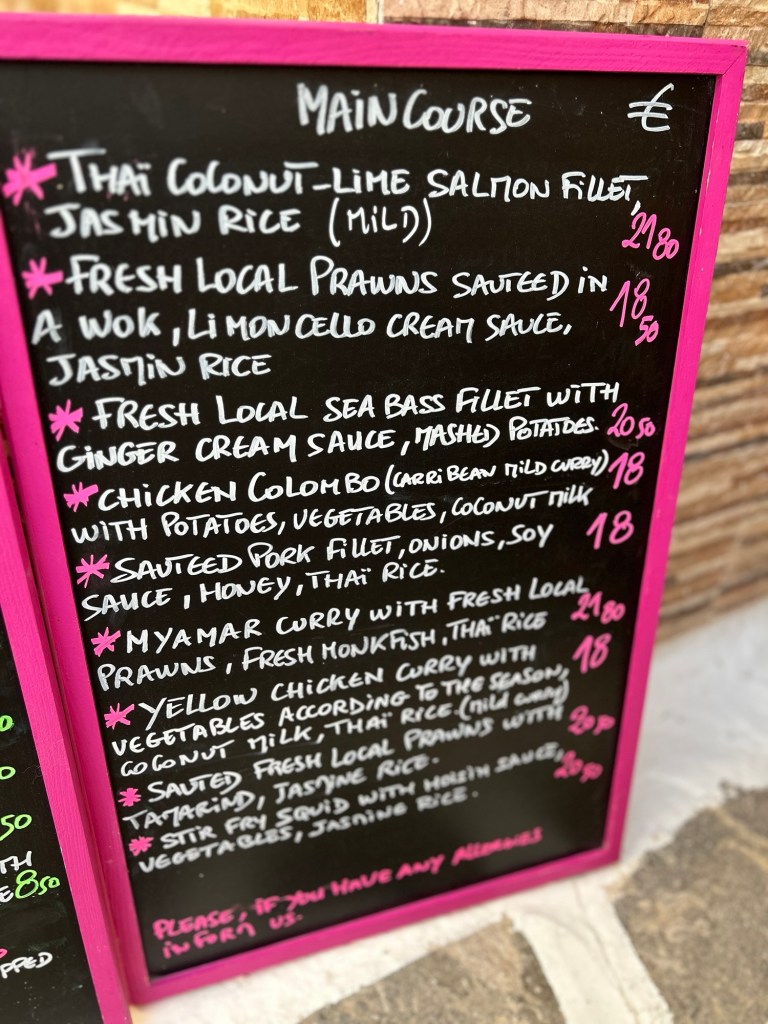 MAIN COURSE €
* THAÏ COCONUT-LIME SALMON FILLET,
JASMIN RICE (MILD) 21 80
* FRESH LOCAL PRAWNS SAUTEED IN
A WOK, LIMONCELLO CREAM SAUCE, 18 50
JASMIN RICE
* FRESH LOCAL SEA BASS FILLET WITH
GINGER CREAM SAUCE, MASHED POTATOES. 20 50
* CHICKEN COLOMBO (CARRIBEAN MILD CURRY) 18
WITH POTATOES, VEGETABLES, COCONUT MILK
* SAUTEED PORK FILLET, ONIONS, SOY 18
SAUCE, HONEY, THAÏ RICE.
* MYAMAR CURRY WITH FRESH LOCAL
PRAWNS, FRESH MONKFISH, THAÏ RICE 21 80
* YELLOW CHICKEN CURRY WITH 18
VEGETABLES ACCORDING TO THE SEASON,
COCONUT MILK, THAÏ RICE. (MILD CURRY)
* SAUTED FRESH LOCAL PRAWNS WITH 20 50
TAMARIND, JASMINE RICE.
* STIR FRY SQUID WITH HOISIN SAUCE, 20 50
VEGETABLES, JASMINE RICE.
PLEASE, IF YOU HAVE ANY ALLERGIES
INFORM US.
50
TH
E 8 50
PPED